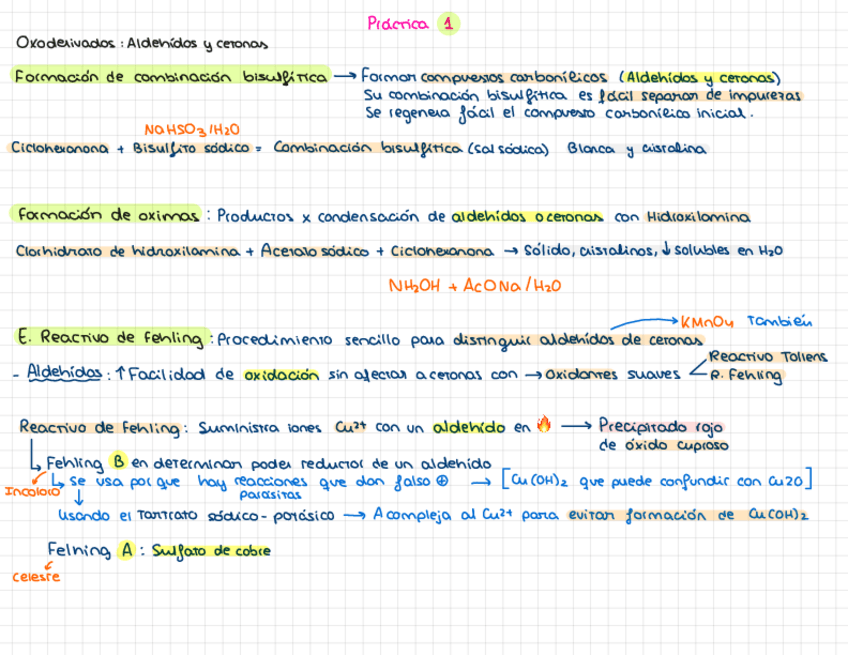 Práctica 1
Oxoderivados: Aldehídos y cetonas
Formación de combinación bisulfítica → Forman compuestos carbonílicos (Aldehídos y cetonas)
Su combinación bisulfítica es fácil separar de impurezas
Se regenera fácil el compuesto carbonílico inicial.
NaHSO3/H2O
Ciclohexanona + Bisulfito sódico = Combinación bisulfítica (sal sódica) Blanca y cristalina
Formación de oximas: Productos x condensación de aldehídos o cetonas con Hidroxilamina
Clorhidrato de hidroxilamina + Acetato sódico + Ciclohexanona → Sólido, cristalinos, ↓ solubles en H2O
NH2OH + AcONa/H2O
KMnO4 También
E. Reactivo de fehling: Procedimiento sencillo para distinguir aldehídos de cetonas
Reactivo Tollens
- Aldehídos: ↑ Facilidad de oxidación sin afectar a cetonas con → Oxidantes suaves
R. Fehling
Reactivo de fehling: Suministra iones Cu2+ con un aldehído en 🔥 → Precipitado rojo
de óxido cuproso
Fehling B en determinar poder reductor de un aldehído
Incoloro
se usa por que hay reacciones que dan falso ⊕ → [Cu(OH)2 que puede confundir con Cu2O]
parásitas
Usando el Tartrato sódico-potásico → Acompleja al Cu2+ para evitar formación de Cu(OH)2
Felning A: Sulfato de cobre
celeste